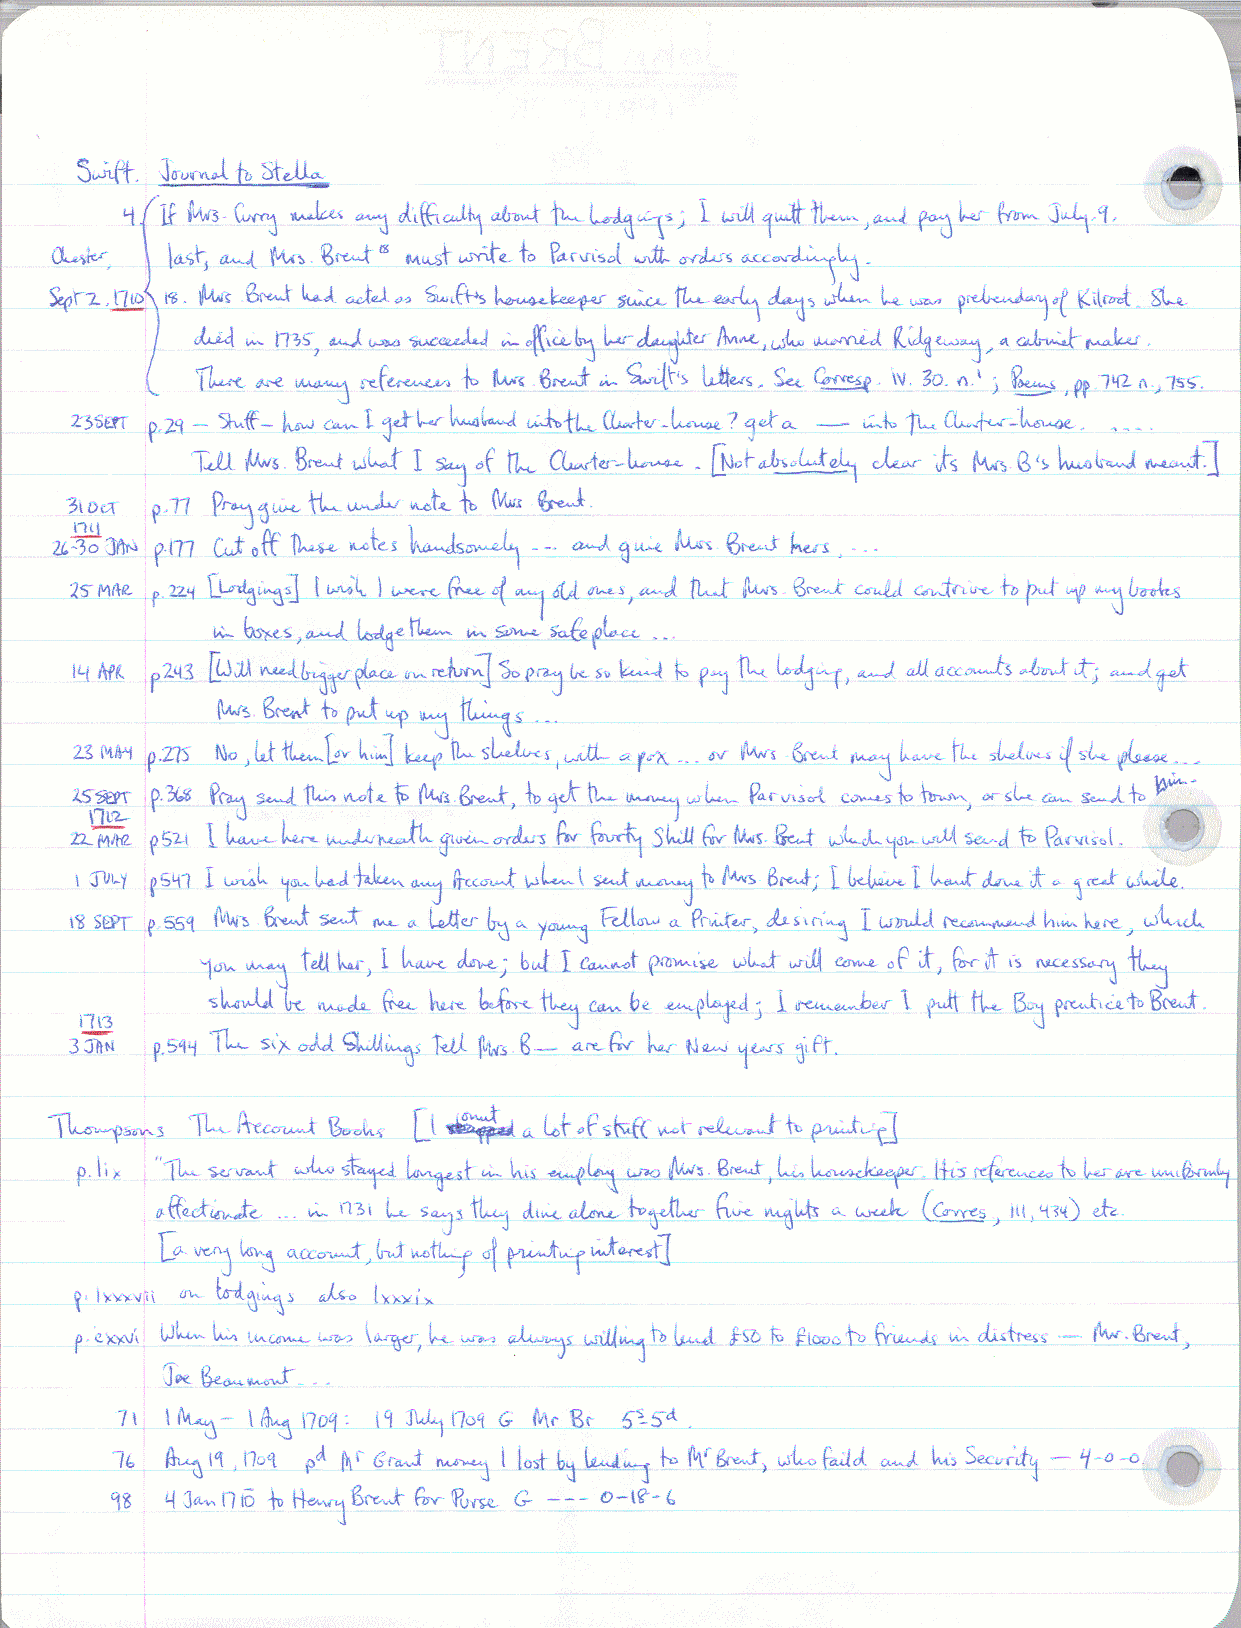 Swift. Journal to Stella
4 If Mrs. Curry makes any difficulty about the Lodgings; I will quitt them, and pay her from July 9.
Chester, last, and Mrs. Brent 18 must write to Parvisol with orders accordingly.
Sept 2. 1710 18. Mrs Brent had acted as Swift's housekeeper since the early days when he was prebendary of Kilroot. She
died in 1735, and was succeeded in office by her daughter Anne, who married Ridgeway, a cabinet maker.
There are many references to Mrs. Brent in Swift's letters. See Corresp. iv. 30. n.1; Poems, pp 742 n., 755.
23 SEPT p.29 – Stuff – how can I get her husband into the Charter-house? get a — into the Charter-house. ....
Tell Mrs. Brent what I say of the Charter-house. [Not absolutely clear its Mrs. B's husband meant.]
31 OCT p.77 Pray give the under note to Mrs Brent.
1711
26-30 JAN p.177 Cut off these notes handsomely --- and give Mrs. Brent hers, ...
25 MAR p.224 [Lodgings] I wish I were free of my old ones, and that Mrs. Brent could contrive to put up my books
in boxes, and lodge them in some safe place ...
14 APR p243 [Will need bigger place on return] So pray be so kind to pay the lodging, and all accounts about it; and get
Mrs. Brent to put up my things ...
23 MAY p.275 No, let them [or him] keep the shelves, with a pox ... or Mrs Brent may have the shelves if she please...
25 SEPT p.368 Pray send this note to Mrs. Brent, to get the money when Parvisol comes to town, or she can send to him--
1712
22 MAR p521 I have here underneath given orders for fourty Shill for Mrs. Brent which you will send to Parvisol.
1 JULY p547 I wish you had taken any Account when I sent money to Mrs Brent; I believe I hant done it a great while.
18 SEPT p.559 Mrs Brent sent me a Letter by a young Fellow a Printer, desiring I would recommend him here, which
you may tell her, I have done; but I cannot promise what will come of it, for it is necessary they
should be made free here before they can be employd; I remember I putt the Boy prentice to Brent.
1713
3 JAN p.594 The six odd Shillings tell Mrs. B— are for her New years gift.
Thompsons The Account Books [I omit a lot of stuff not relevant to printing]
p.lix "The servant who stayed longest in his employ was Mrs. Brent, his housekeeper. His references to her are uniformly
affectionate ... in 1731 he says they dine alone together five nights a week (Corres, 111, 434) etc.
[a very long account, but nothing of printing interest]
p. lxxxvii on lodgings also lxxxix
p. cxxvi When his income was larger, he was always willing to lend £50 to £1000 to friends in distress — Mr. Brent,
Joe Beaumont ...
71 1 May – 1 Aug 1709: 19 July 1709 G Mr Br 5s-5d.
76 Aug 19, 1709 pd Mr Grant money I lost by lending to Mr Brent, who faild and his Security — 4-0-0
98 4 Jan 1710 to Henry Brent for Purse G --- 0-18-6